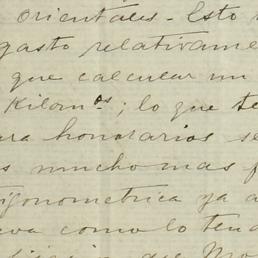 orientales - Esto
gasto relativame
que calcular un
Kilom.os; lo que te
ara honorarios se
s muncho mas f
igonometrica ya a
eva como lo tend
que Mo